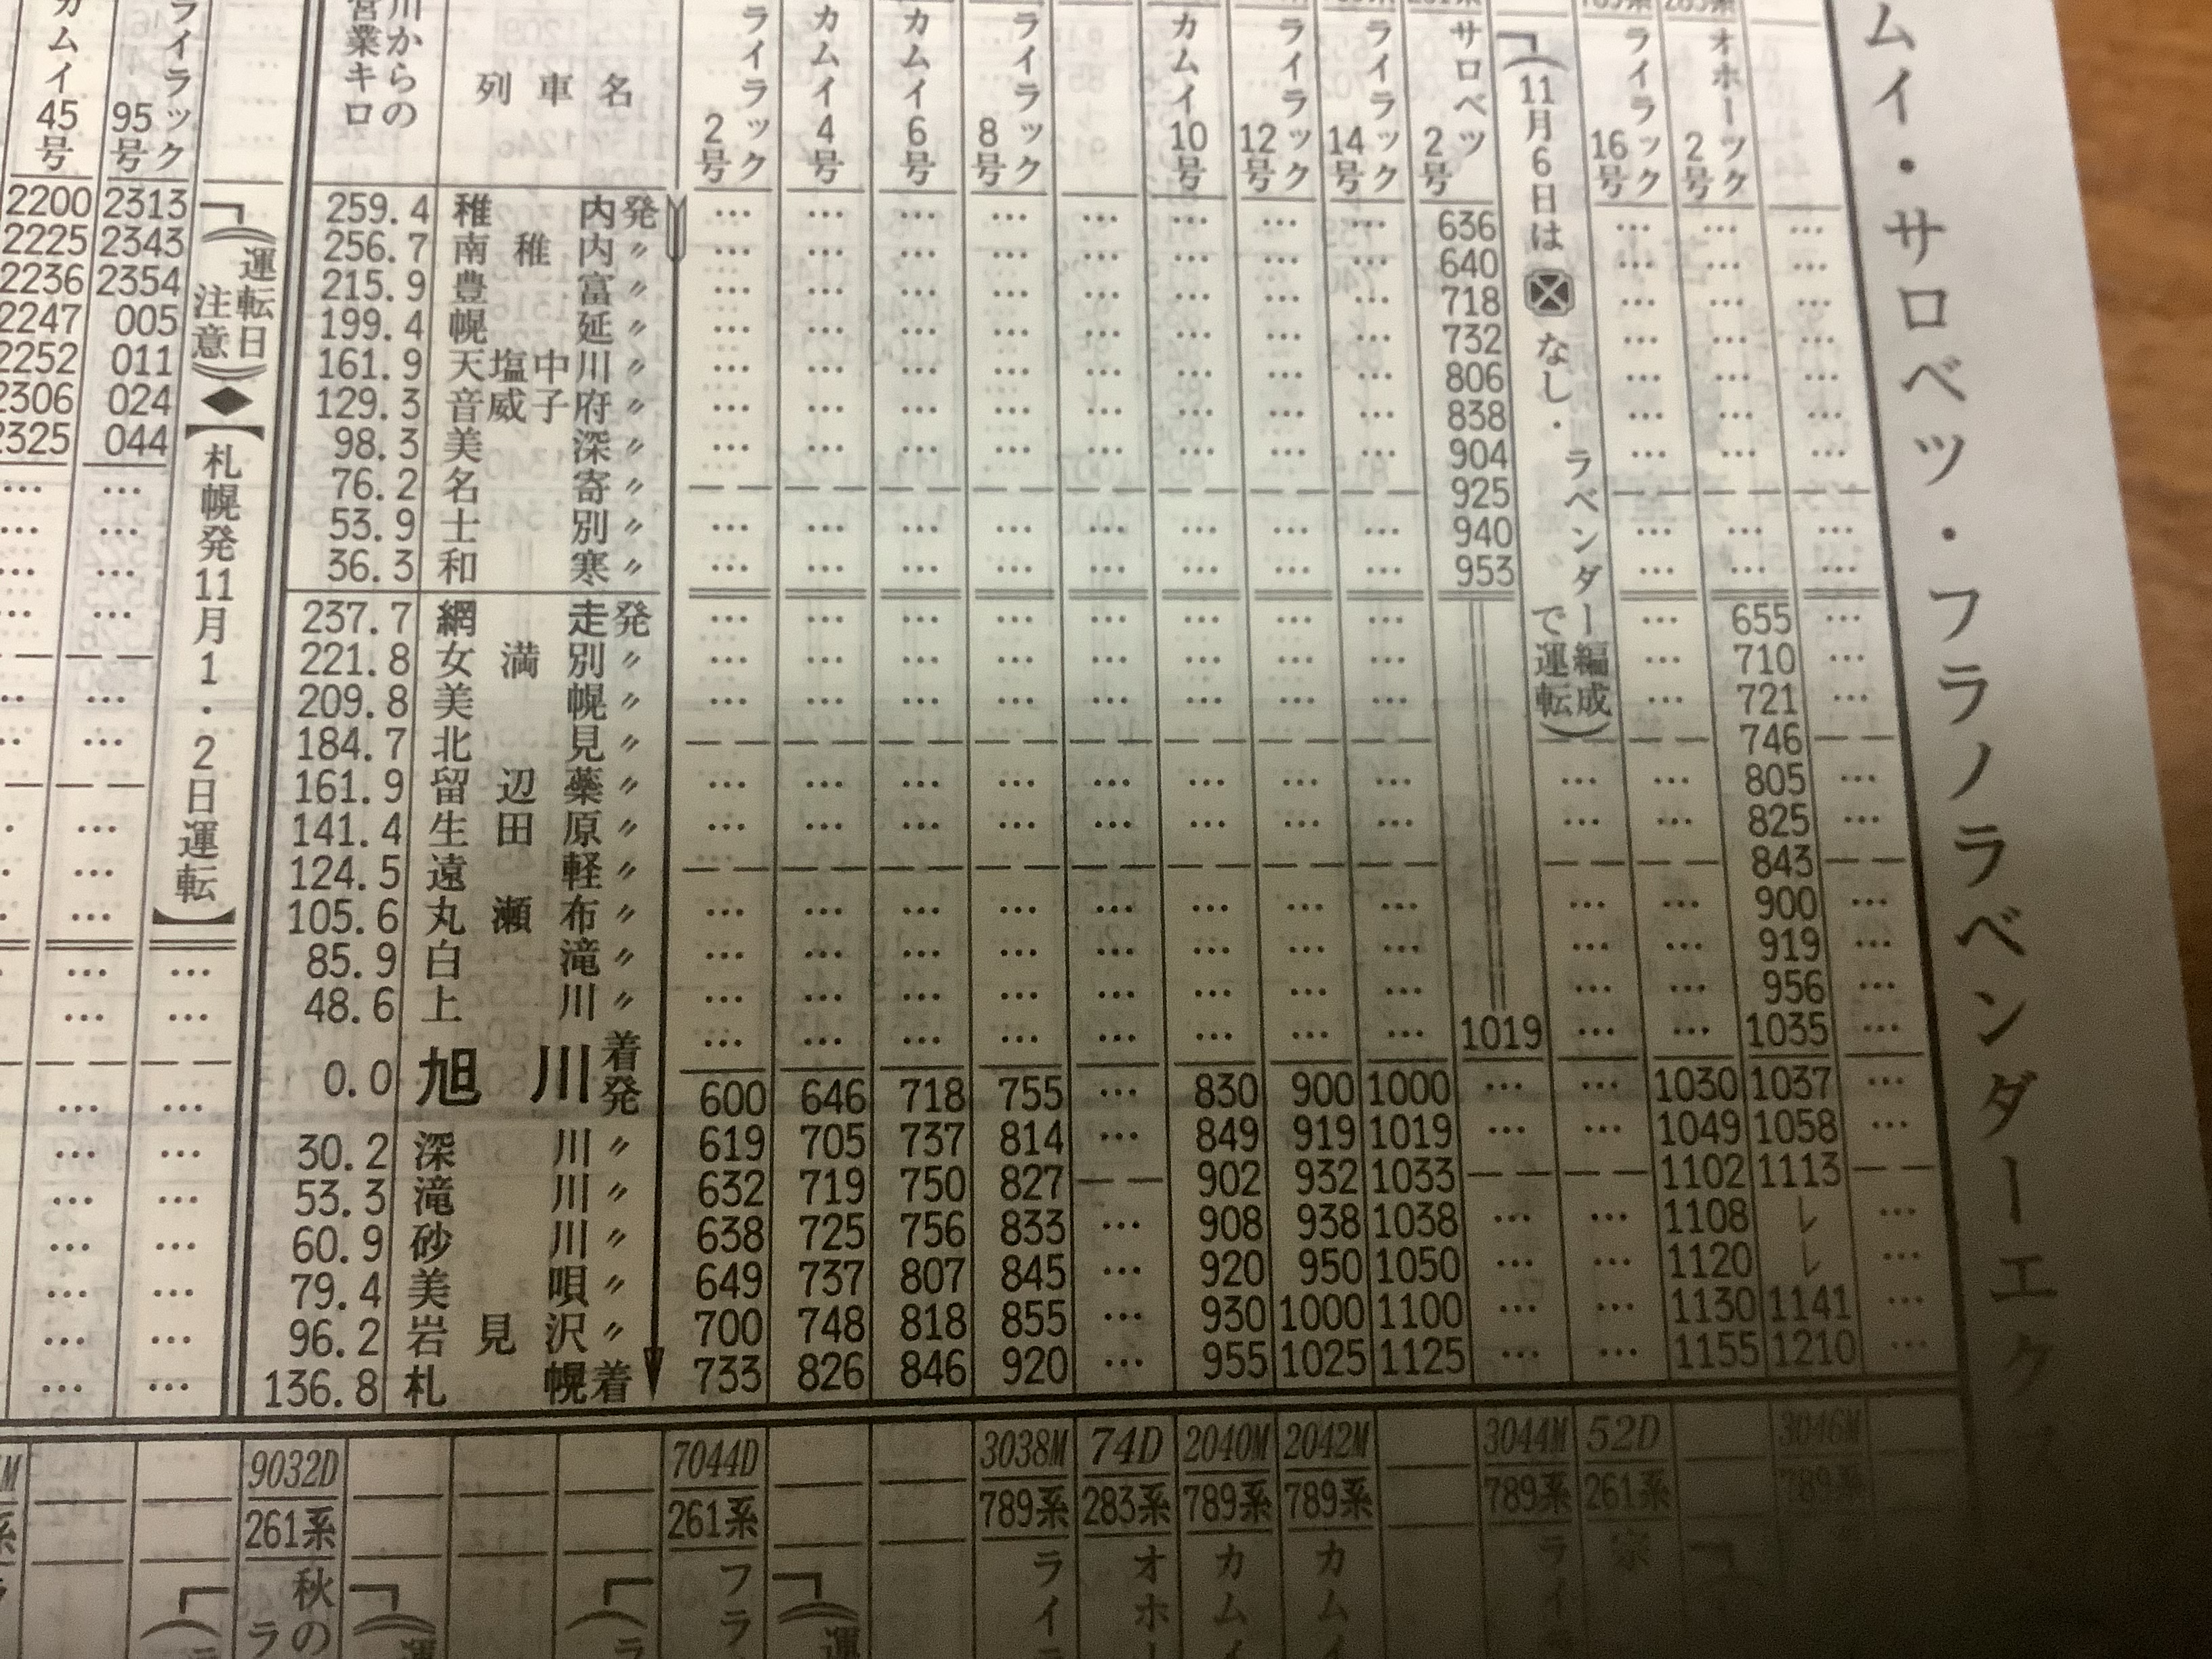 カムイ 45号 2200 2225 2236 2247 2252 2306 2325
ライラック 95号 2313 2343 2354 005 011 024 044
(運転日注意)◆【札幌発11月1・2日運転】
川からの営業キロ 列車名 ライラック2号 カムイ4号 カムイ6号 ライラック8号 カムイ10号 ライラック12号 ライラック14号 サロベツ2号 ライラック16号 オホーツク2号
(11月6日は なし・ラベンダー編成で運転)
259.4 稚内発 … … … … … … … … 636 … … …
256.7 南稚内〃 … … … … … … … … 640 … … …
215.9 豊富〃 … … … … … … … … 718 … … …
199.4 幌延〃 … … … … … … … … 732 … … …
161.9 天塩中川〃 … … … … … … … … 806 … … …
129.3 音威子府〃 … … … … … … … … 838 … … …
98.3 美深〃 … … … … … … … … 904 … … …
76.2 名寄〃 925
53.9 士別〃 … … … … … … … … 940 … … …
36.3 和寒〃 … … … … … … … … 953 … … …
237.7 網走発 … … … … … … … … … 655 …
221.8 女満別〃 … … … … … … … … … 710 …
209.8 美幌〃 … … … … … … … … … 721 …
184.7 北見〃 746
161.9 留辺蘂〃 … … … … … … … … … … 805 …
141.4 生田原〃 … … … … … … … … … … 825 …
124.5 遠軽〃 843
105.6 丸瀬布〃 … … … … … … … … … … 900 …
85.9 白滝〃 … … … … … … … … … … 919 …
48.6 上川〃 … … … … … … … … … … 956 …
0.0 旭川着 … … … … … … … … 1019 … … 1035 …
発 600 646 718 755 … 830 900 1000 … … 1030 1037 …
30.2 深川〃 619 705 737 814 … 849 919 1019 … … 1049 1058 …
53.3 滝川〃 632 719 750 827 902 932 1033 1102 1113
60.9 砂川〃 638 725 756 833 … 908 938 1038 … … 1108 レ …
79.4 美唄〃 649 737 807 845 … 920 950 1050 … … 1120 レ …
96.2 岩見沢〃 700 748 818 855 … 930 1000 1100 … … 1130 1141 …
136.8 札幌着 733 826 846 920 … 955 1025 1125 … … 1155 1210 …
9032D 7044D 3038M 74D 2040M 2042M 3044M 52D 3046M
261系 261系 789系 283系 789系 789系 789系 261系 789系
秋の フラ ライラ オホー カムイ カムイ ライ 宗
ムイ・サロベツ・フラノラベンダーエク